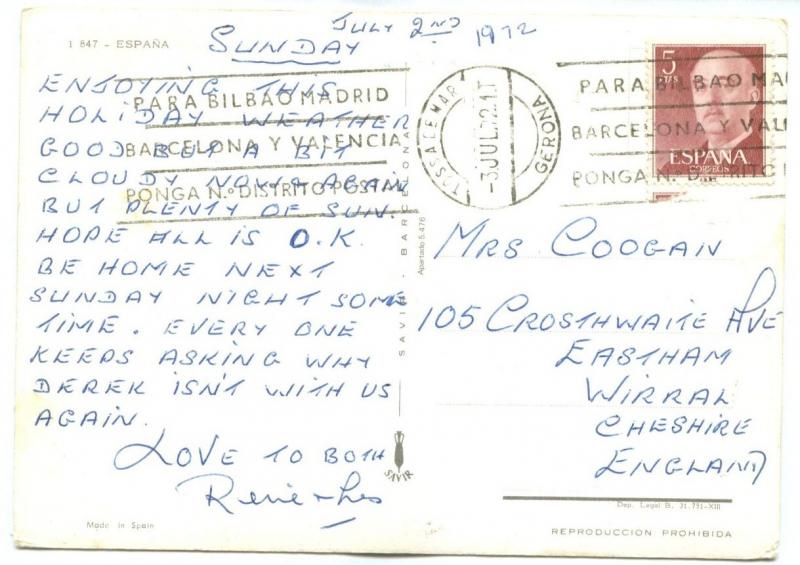 1 847 - ESPAÑA
JULY 2ND 1972
SUNDAY
ENJOYING THIS
HOLIDAY WEATHER
GOOD BUT A BIT
CLOUDY NOW & AGAIN
BUT PLENTY OF SUN.
HOPE ALL IS O.K.
BE HOME NEXT
SUNDAY NIGHT SOME
TIME. EVERY ONE
KEEPS ASKING WHY
DEREK ISN'T WITH US
AGAIN.
LOVE TO BOTH
Rene & Les
Made in Spain
PARA BILBAO MADRID
BARCELONA Y VALENCIA
PONGA N.º DISTRITO POSTAL
SAVIR - BARCELONA
Apartado 5.476
SAVIR
TOSSA DE MAR
-3.JUL.72.1.T
GERONA
PARA BILBAO MA
BARCELONA Y VALE
PONGA N.º DISTRITO
5
PTAS
ESPAÑA
CORREOS
MRS COOGAN
105 CROSTHWAITE AVE
EASTHAM
WIRRAL
CHESHIRE
ENGLAND
Dep. Legal B. 31.791-XIII
REPRODUCCION PROHIBIDA